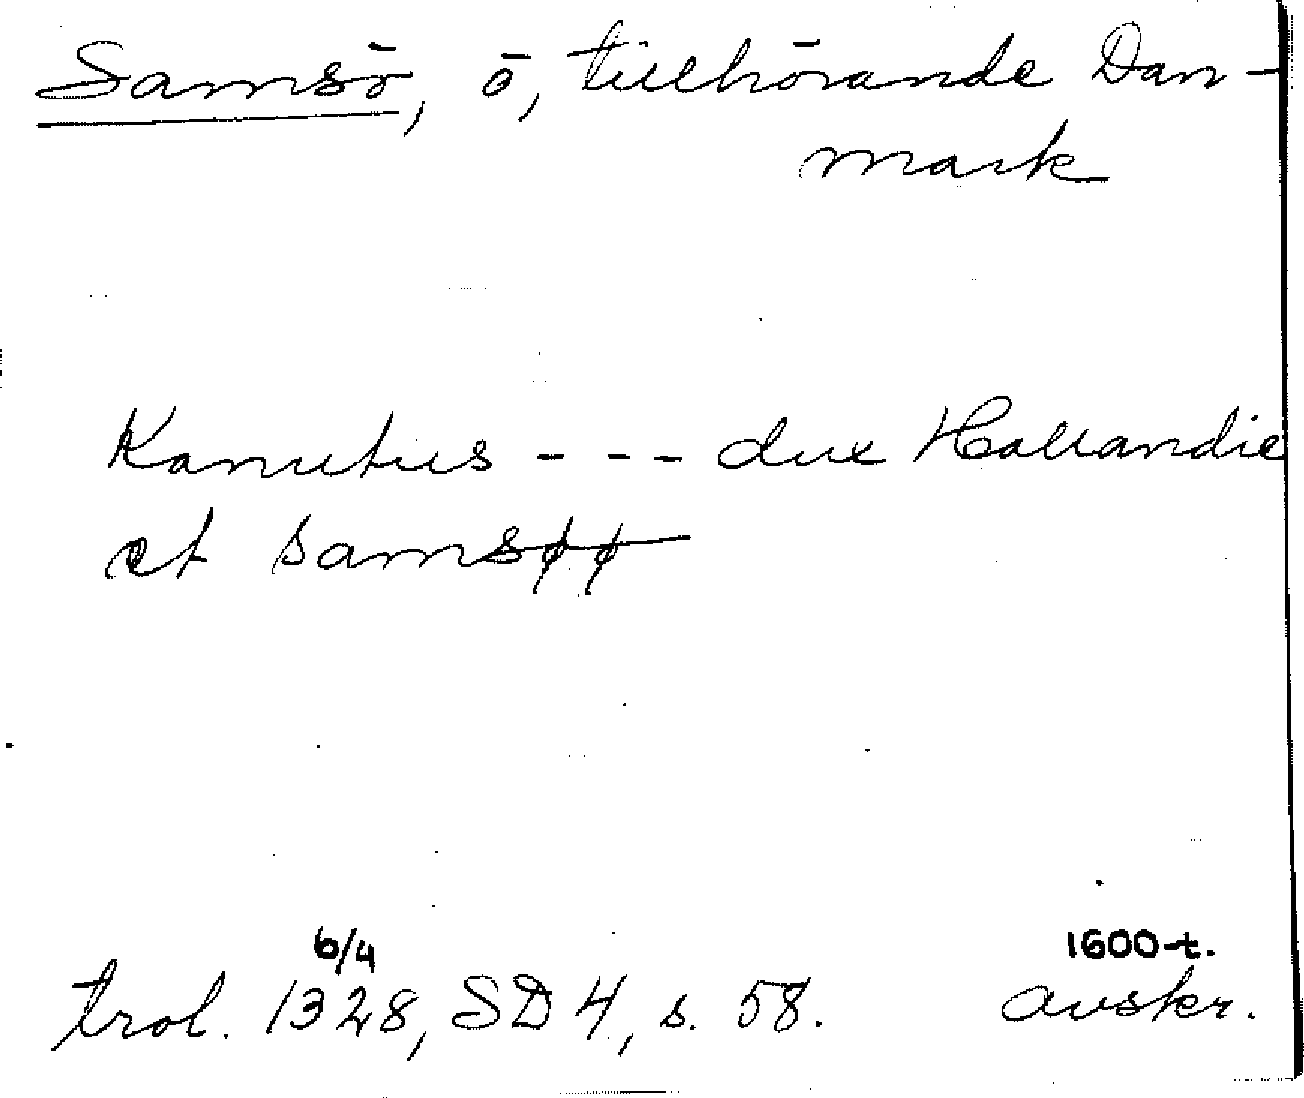 Samsö, ö, tillhörande Dan-
mark
Kanutus - - - dux Hallandie
et samsøø
6/4 1600-t.
trol. 1328, SD 4, s. 58. avskr.